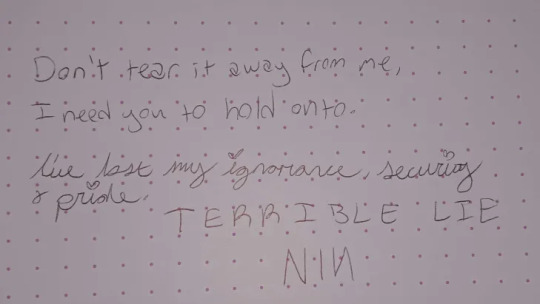 Don't tear it away from me,
I need you to hold onto.
I've lost my ignorance, security
& pride.
TERRIBLE LIE
NIN